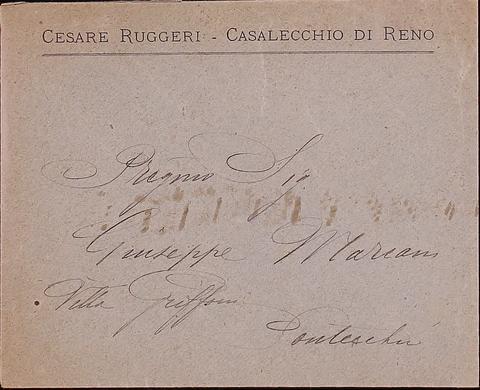 CESARE RUGGERI - CASALECCHIO DI RENO
Pregmo Sig
Giuseppe Mariani
Villa Griffoni
Pontecchio